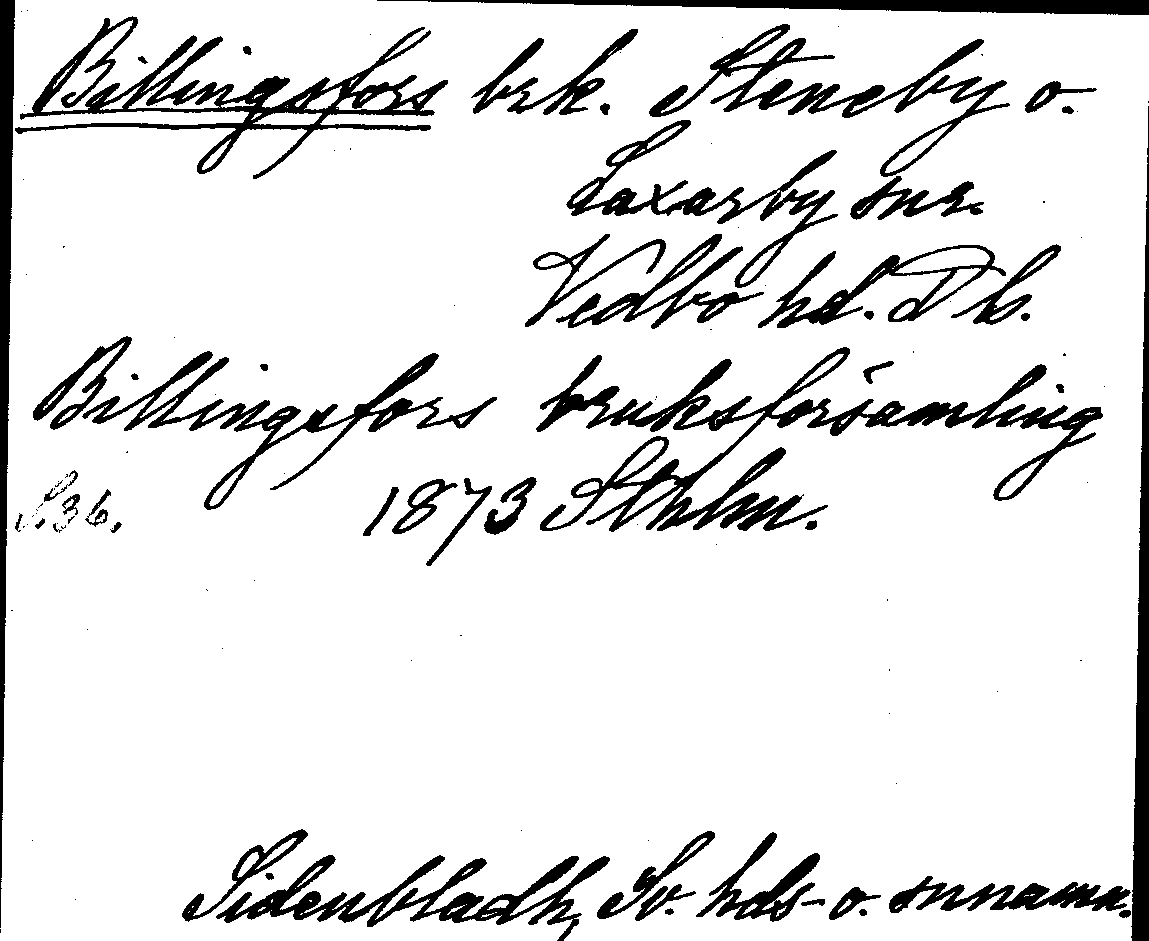 Billingsfors brk. Steneby o.
Laxarby snr.
Vedbo hd. Db.
Billingsfors bruksförsamling
S. 36. 1873 Sthlm.
Sidenbladh, Sv. hds- o. snnamn.